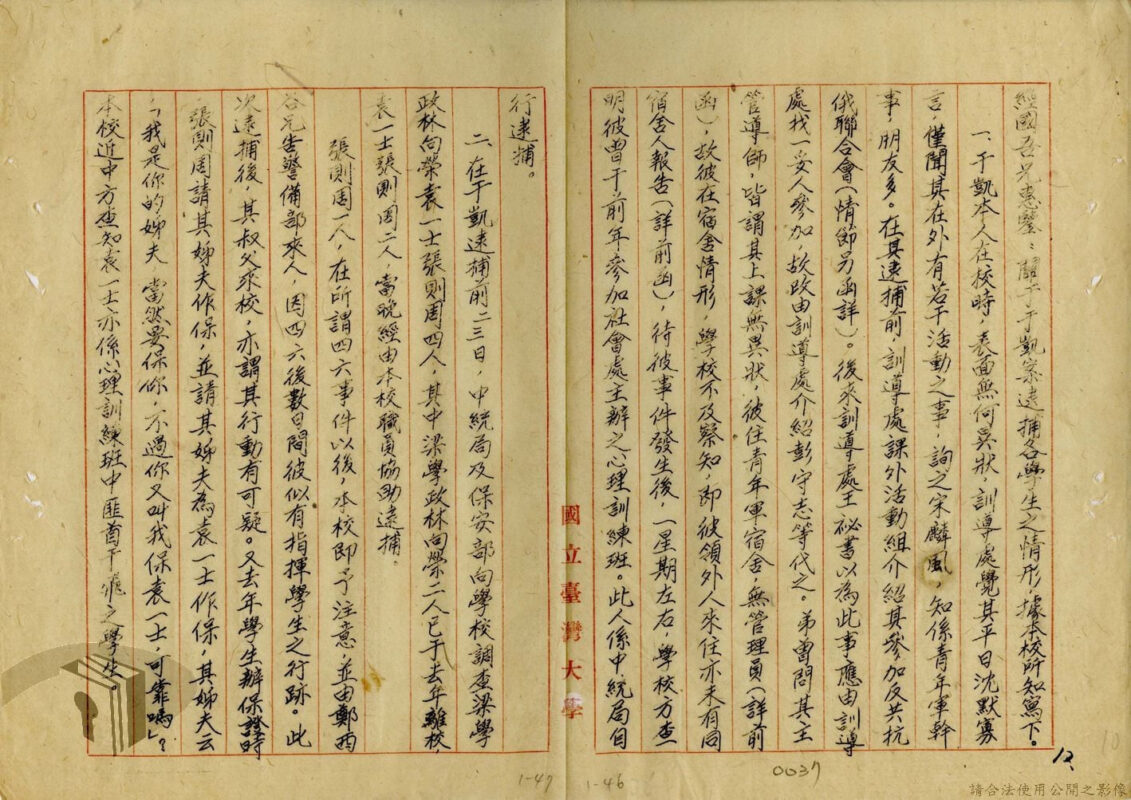 經國吾兄惠鑒：關于于凱案逮捕各學生之情形，據本校所知寫下。
一、于凱本人在校時，表面無何異狀，訓導處覺其平日沈默寡
言，僅聞其在外有若干活動之事，詢之宋麟風，知係青年軍幹
事，朋友多。在其逮捕前，訓導處課外活動組介紹其參加反共抗
俄聯合會（情節另函詳）。後來訓導處王祕書以為此事應由訓導
處找一妥人參加，故改由訓導處介紹彭守志等代之。弟曾問其主
管導師，皆謂其上課無異狀，彼住青年軍宿舍，無管理員（詳前
函），故彼在宿舍情形，學校不及察知，即彼領外人來住亦未有同
宿舍人報告（詳前函），待彼事件發生後，一星期左右，學校方查
明彼曾于前年參加社會處主辦之心理訓練班。此人係中統局自
行逮捕。
二、在于凱逮捕前二三日，中統局及保安部向學校調查梁學
政林向榮袁一士張則周四人，其中梁學政林向榮二人已于去年離校
袁一士張則周二人，當晚經由本校職員協助逮捕。
張則周一人，在所謂四六事件以後，本校即予注意，並由鄭西
谷兄告警備部來人，因四六後數日間彼似有指揮學生之行跡。此
次逮捕後，其叔父來校，亦謂其行動有可疑。又去年學生辦保證時
張則周請其姊夫作保，並請其姊夫為袁一士作保，其姊夫云
「我是你的姊夫，當然要保你，不過你又叫我保袁一士，可靠嗎」？
本校近中方查知袁一士亦係心理訓練班中匪酋于飛之學生。
國立臺灣大學
1-47
1-46
0037
12
10
請合法使用公開之影像